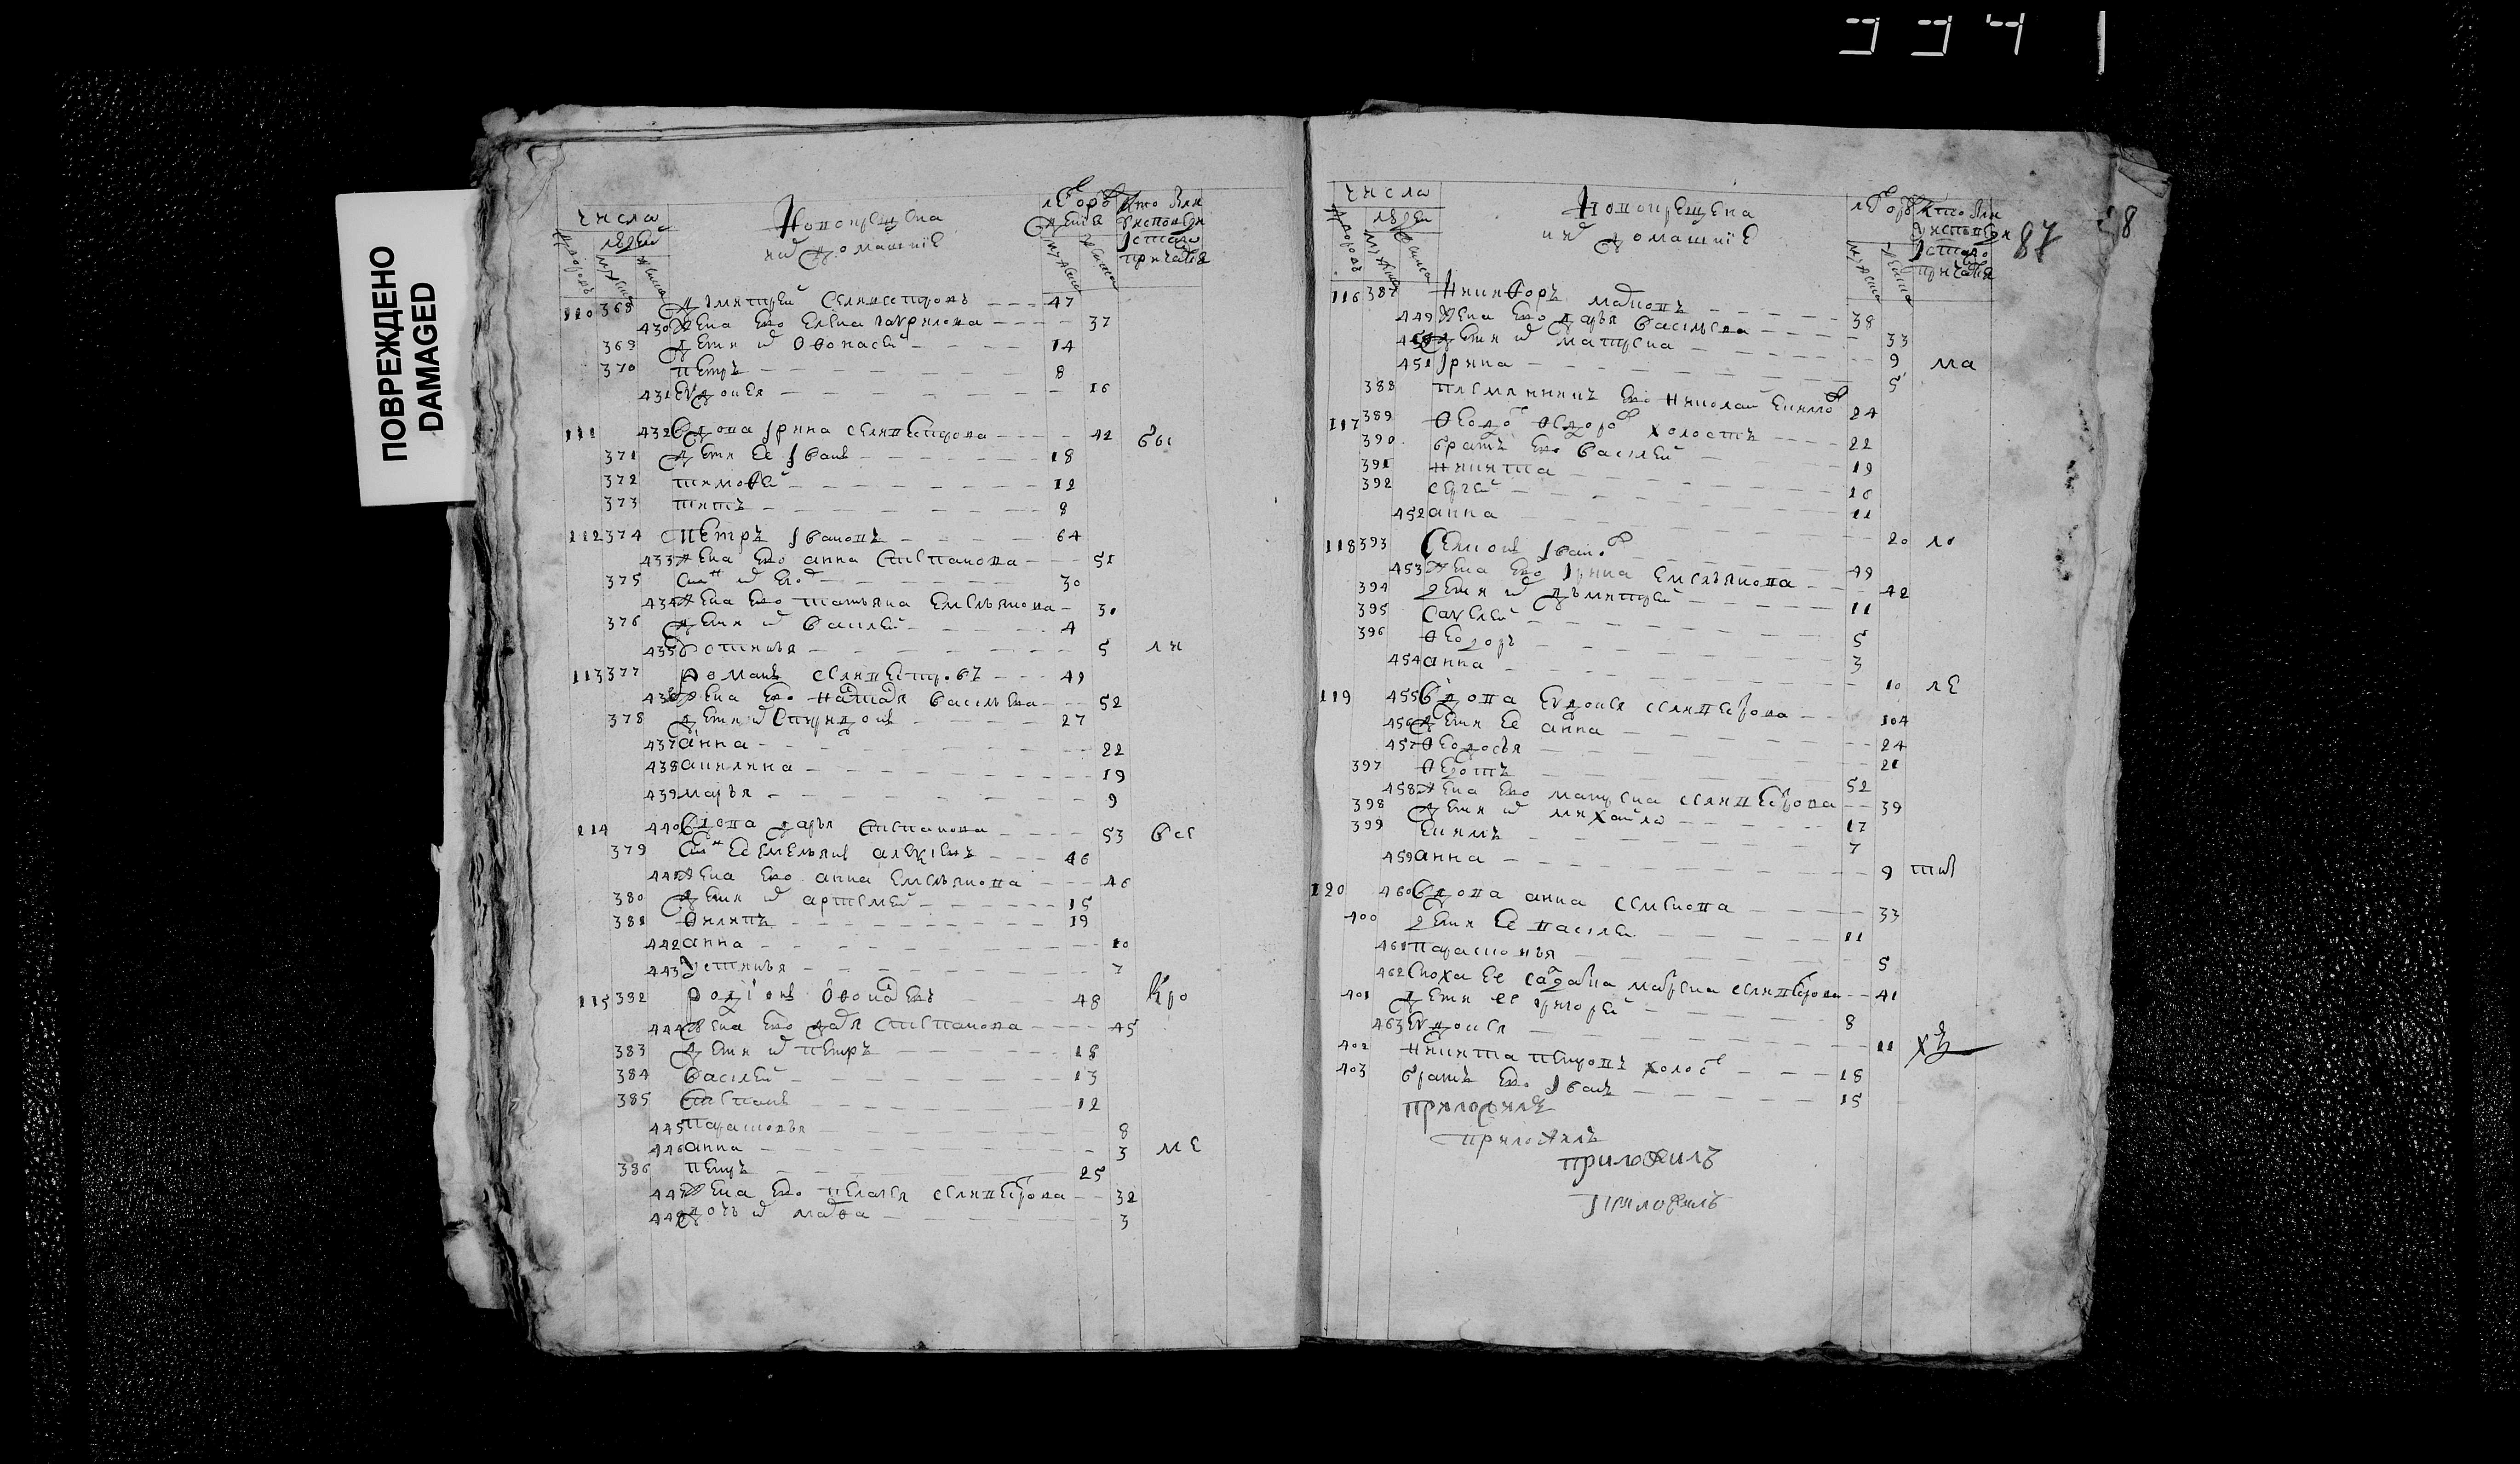 ПОВРЕЖДЕНО
DAMAGED
числа
людей
Новокрещена
и их домашние
лета от рожде
110 368 Дъмитрей Селивестровъ 47
430 Жена ево Елена Гаврилова 37
369 Дети их Афонасей 14
370 Петръ 8
431 Евдокея 16
111 432 Вдова Ирина Селивестрова 42
371 Дети ее Иванъ 18
372 Тимофей 12
373 Титъ 8
112 374 Петръ Ивановъ 64
433 Жена ево Анна Степанова 51
375 Сынъ их 30
434 Жена ево Татьяна Емельянова 30
376 Дети их Василей 4
435 Устинья 5
113 377 Романъ Селивестровъ 49
436 Жена ево Наталья Васильева 52
378 Дети их Спиридонъ 27
437 анна 22
438 акилина 19
439 марья 9
114 440 Вдова дарья Степанова 53
379 Сынъ ее Емельянъ 46
441 Жена ево анна Емельянова 46
380 Дети их артемей 15
381 Филипъ 19
442 анна 10
443 Устинья 7
115 382 Родионъ 48
444 Жена ево дарья Степанова 45
383 Дети их Петръ 18
384 Василей 13
385 Степанъ 12
445 Парасковья 8
446 анна 3
386 Петръ 25
447 Жена ево Пелагея Селивестрова 32
448 дочь их марфа 3
87
числа
людей
Новокрещена
и их домашние
116 387 Никифоръ марковъ 38
449 Жена ево дарья Васильева 33
450 Дети их матрена 9
451 Ирина 5
388 Племянникъ ево Николай 24
117 389 Федоръ Федоровъ холостъ 22
390 братъ ево Василей 19
391 Никита 16
392 сергей 11
452 анна 20
118 393 Семионъ Ивановъ 49
453 Жена ево Ирина Емельянова 42
394 дети их дъмитрей 11
395 Савелей 5
396 Федоръ 3
454 анна 10
119 455 Вдова Евдокея Селивестрова 104
456 Дети ее анна 24
457 Федосья 21
397 Федотъ 52
458 Жена ево матрена Селивестрова 39
398 Дети их михайла 17
399 Екимъ 7
459 анна 9
120 460 Вдова анна Семенова 33
400 дети ее Василей 11
461 Парасковья 5
462 Сноха ее салдатка матрена Селивестрова 41
401 Дети ее григорей 8
463 Евдокея 11
402 Никита Петровъ холостъ 18
403 братъ ево Иванъ 15
приложилъ
приложилъ
приложилъ
приложилъ